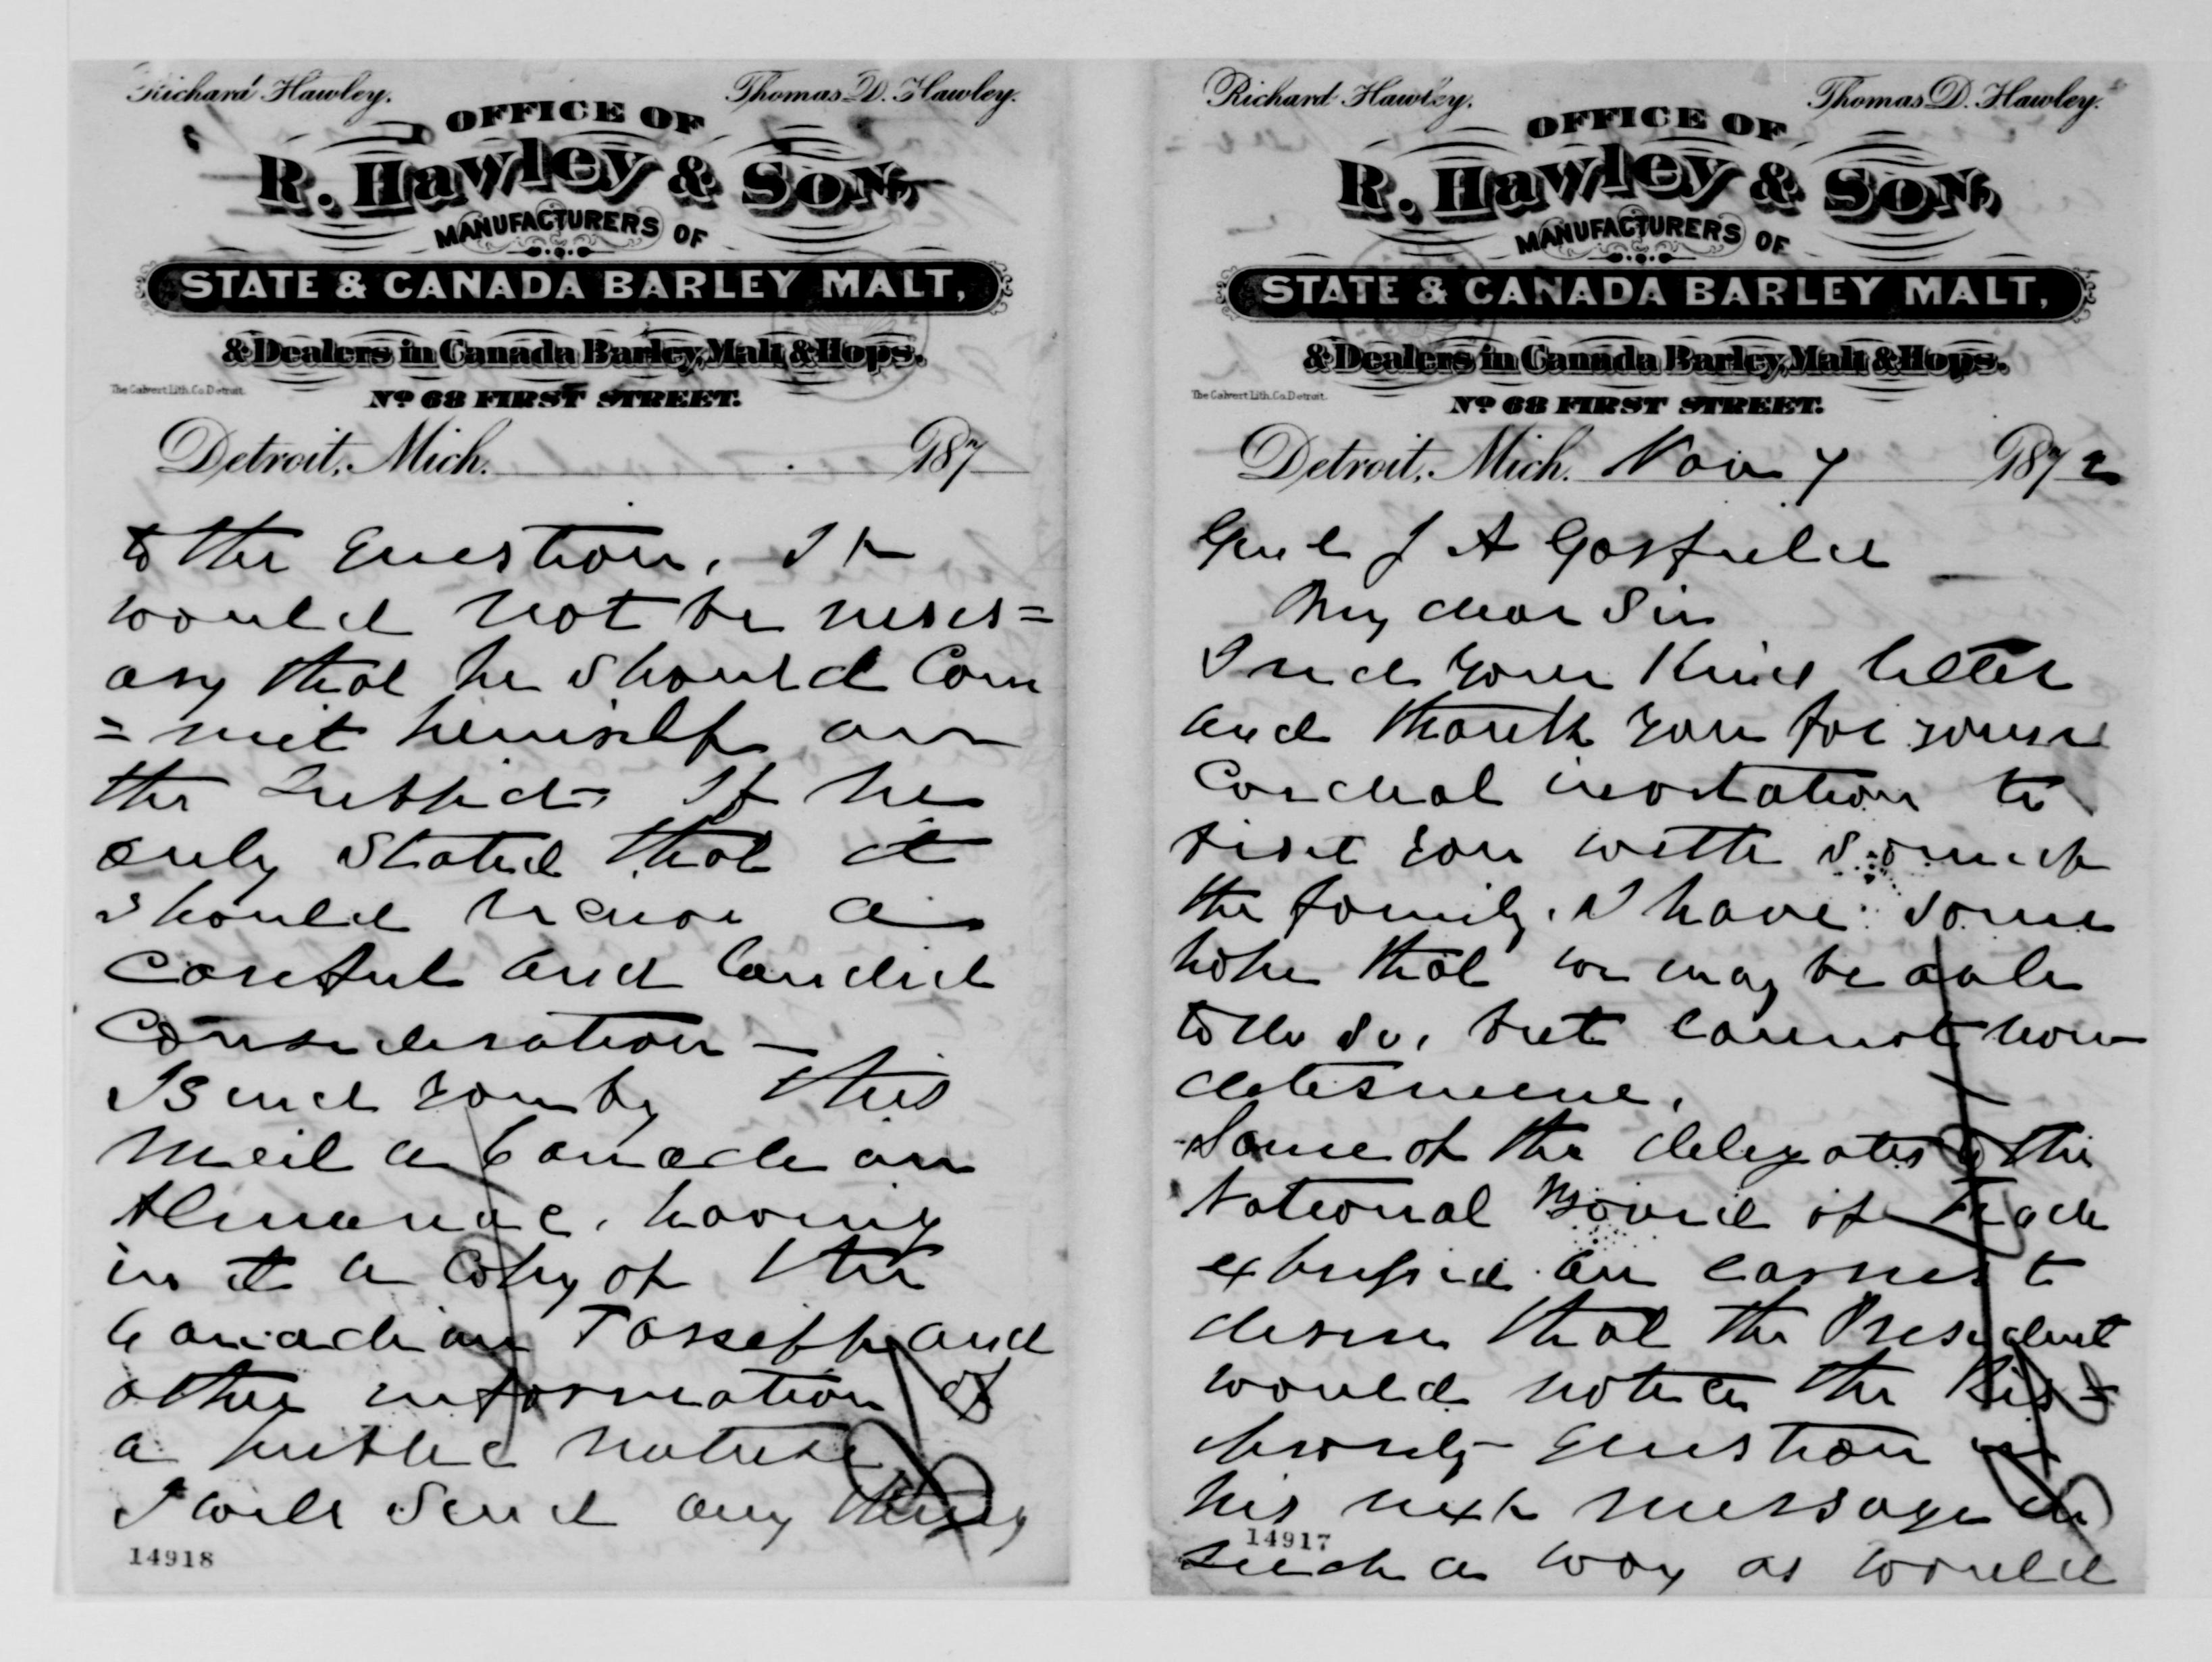 Richard Hawley. Thomas D. Hawley.
OFFICE OF
R. Hawley & Son,
MANUFACTURERS OF
STATE & CANADA BARLEY MALT,
& Dealers in Canada Barley, Malt & Hops.
The Calvert Lith. Co. Detroit.
No 68 FIRST STREET.
Detroit, Mich. 187
to the Question, It
would not be neses=
ary that he should Com
=mit himself on
the Subject If he
only stated that it
should receive a
careful and Candid
Consideration—
I send you by this
mail a Canadian
Almanac, having
in it a Copy of the
Canadian Tariff and
other information of
a public nature
I will send any thing
14918
Richard Hawley. Thomas D. Hawley.
OFFICE OF
R. Hawley & Son,
MANUFACTURERS OF
STATE & CANADA BARLEY MALT,
& Dealers in Canada Barley, Malt & Hops.
The Calvert Lith. Co. Detroit.
No 68 FIRST STREET.
Detroit, Mich. Nov 7 1872
Genl J A Garfield
My dear Sir
I recd your Kind letter
and thank you for your
Cordial invitation to
visit you with so much
the family. I have some
hope that we may be able
to do so, but cannot now
determine.
Some of the delegates to the
National Board of Trade
expressed an earnest
desire that the President
would notice the Res=
iprosity Question in
his next message in
14917
such a way as would